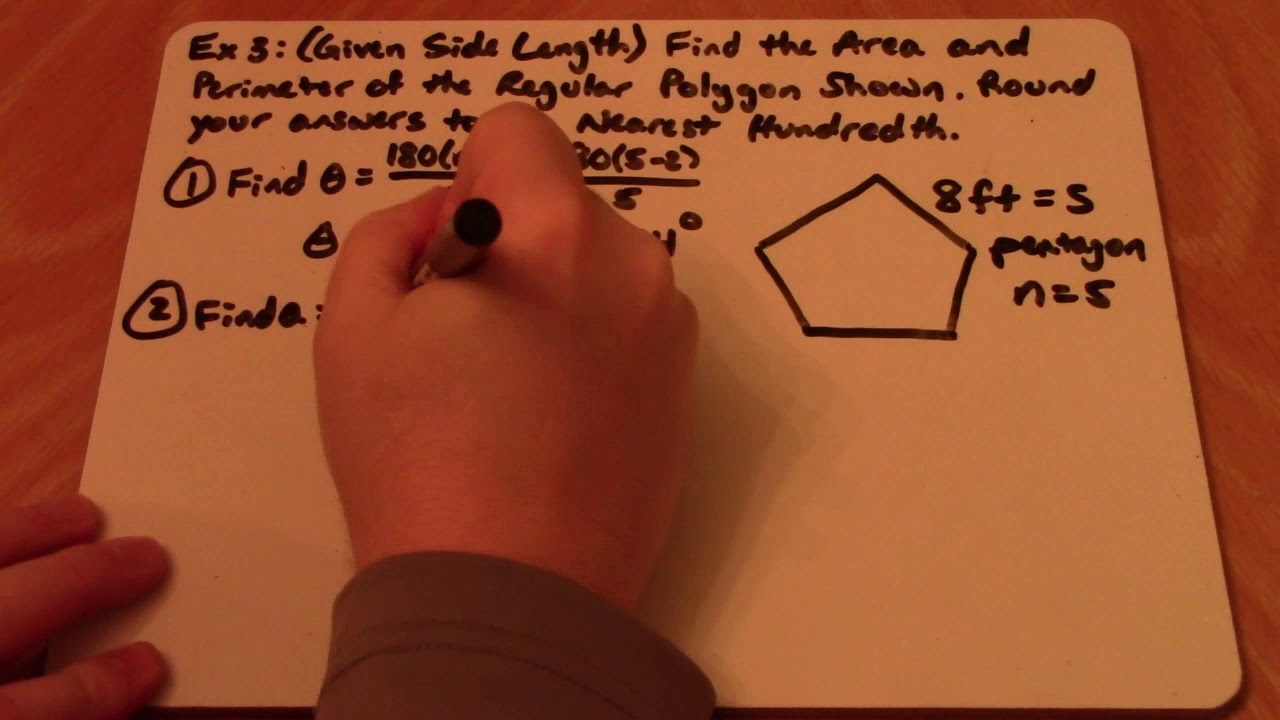 Ex 3: (Given Side Length) Find the Area and
Perimeter of the Regular Polygon Shown. Round
your answers to Nearest Hundredth.
① Find θ = 180( 80(5-2)
5
θ 4°
② Find a =
8ft = s
pentagon
n=5